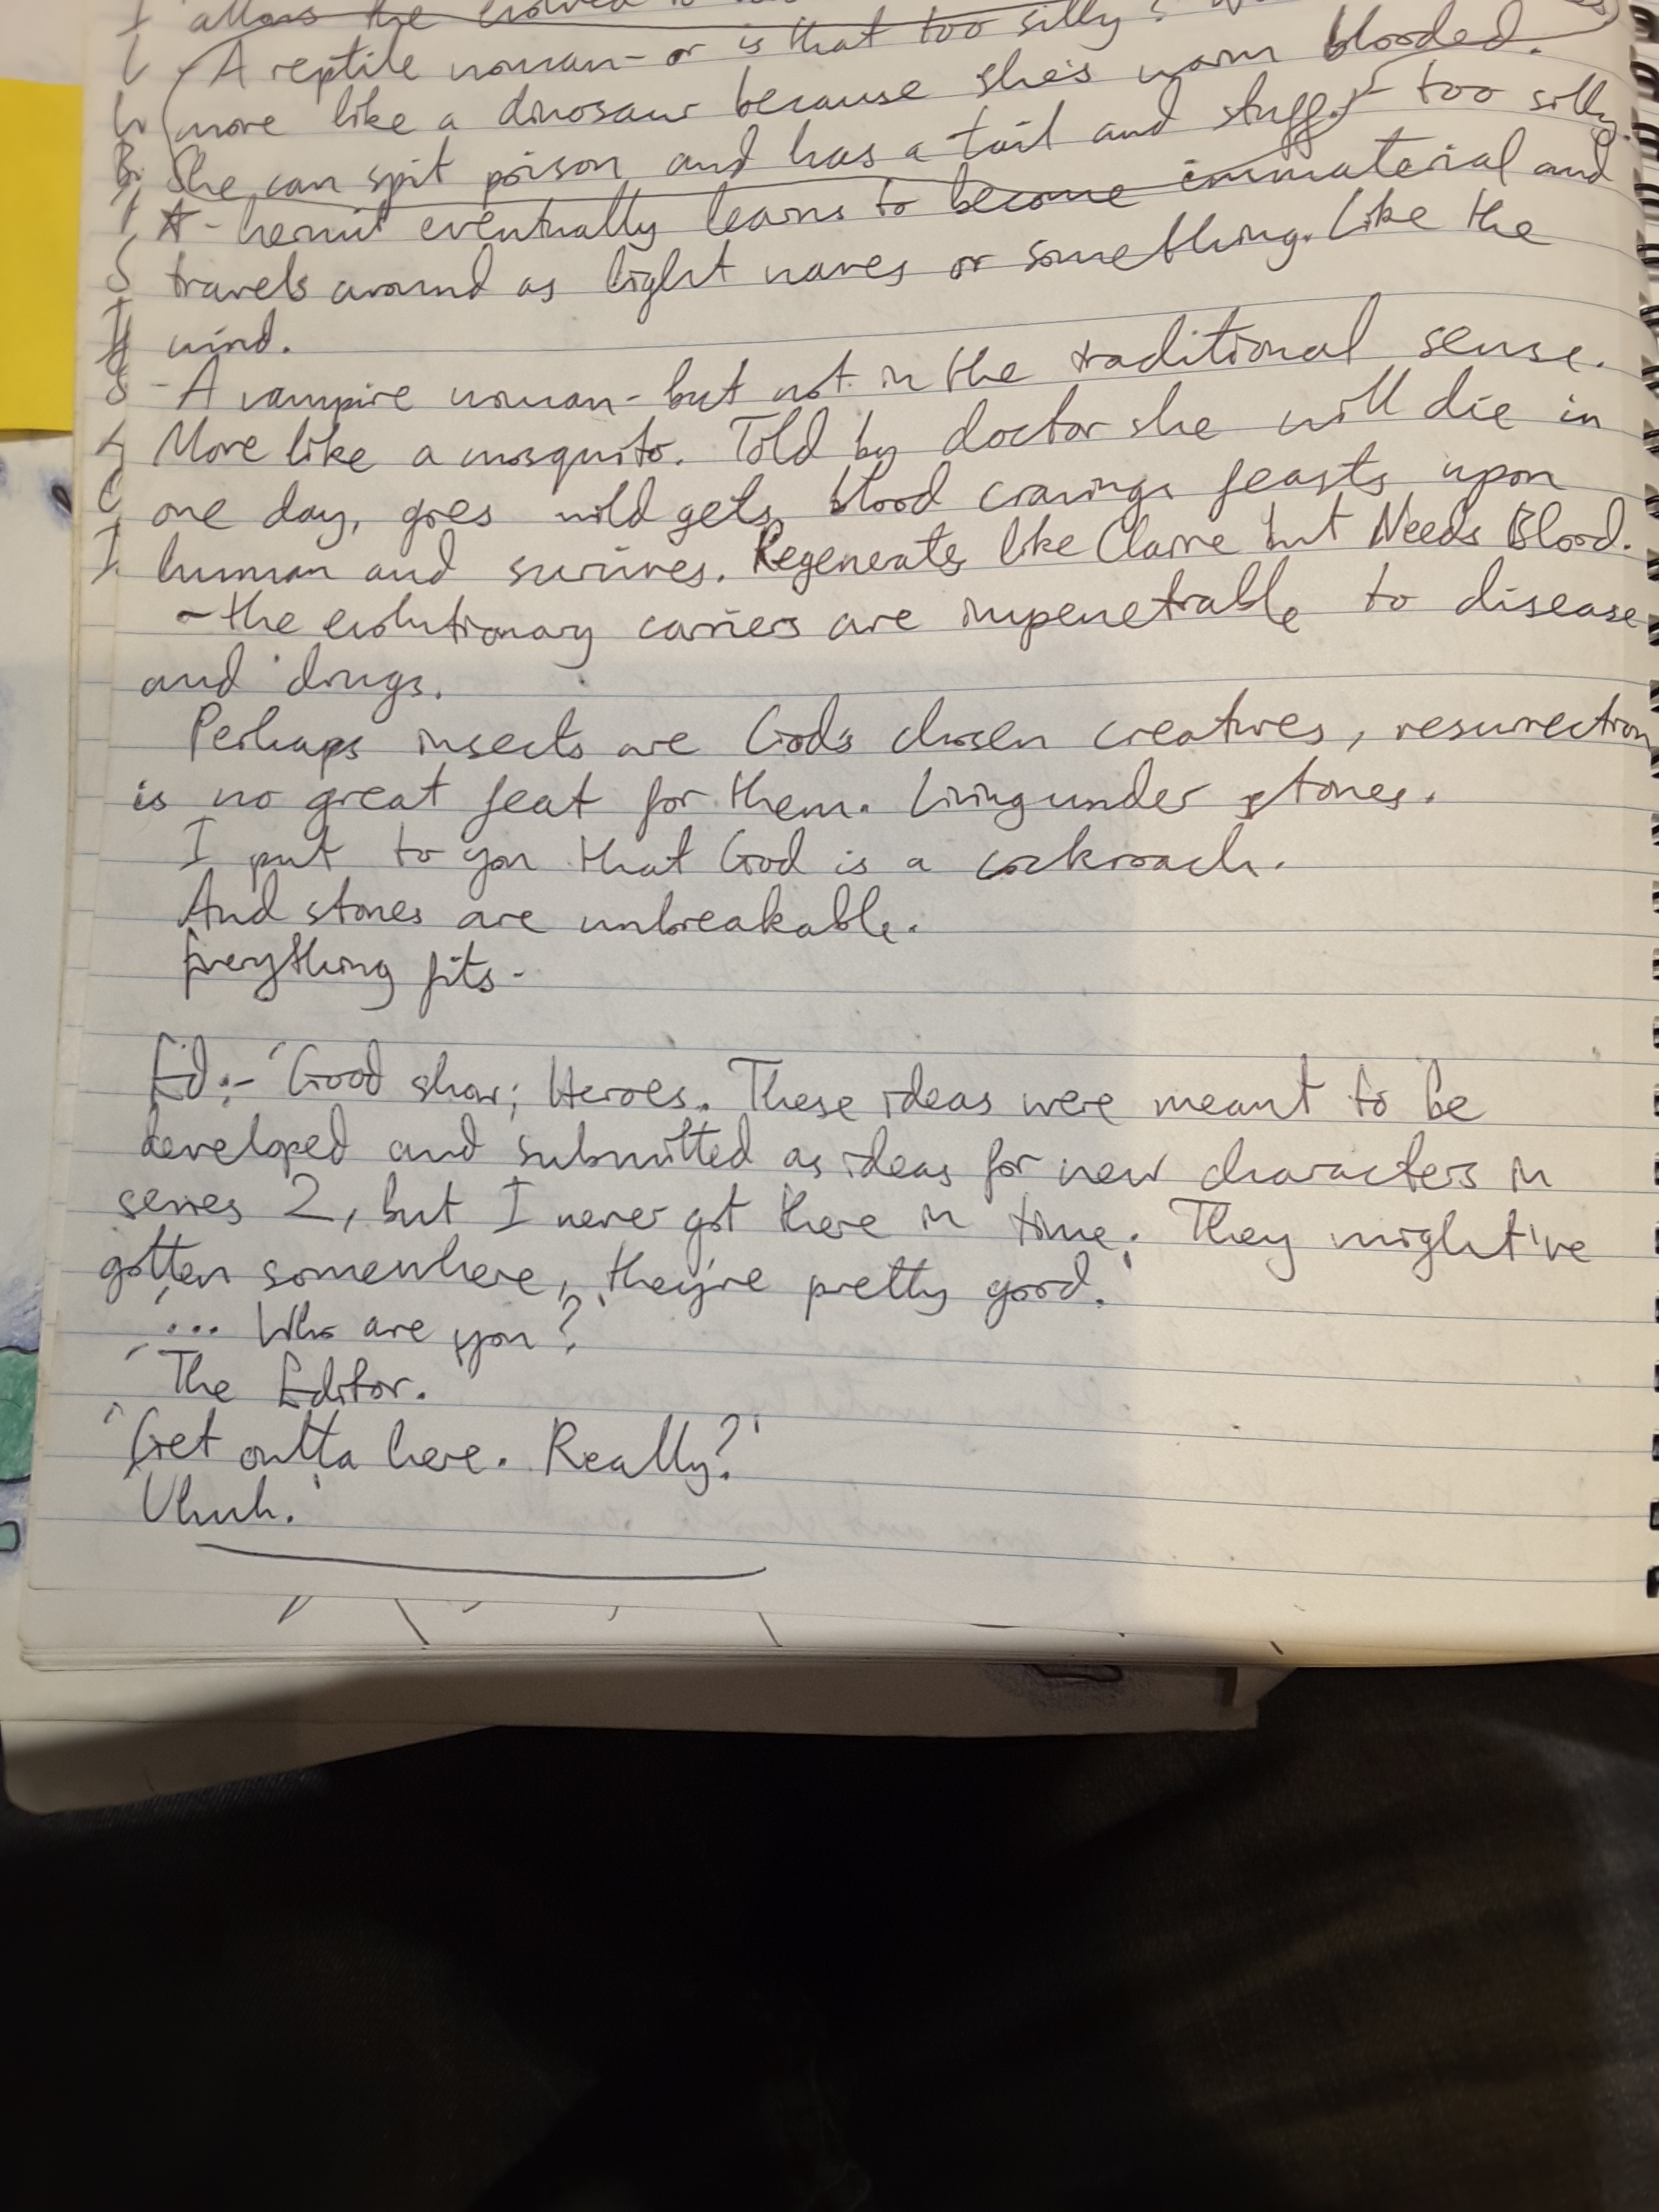 allows the evolved to
A reptile woman - or is that too silly?
more like a dinosaur because she's warm blooded.
She can spit poison and has a tail and stuff.) - too silly.
☆ - hermit eventually learns to become immaterial and
travels around as light waves or something. Like the
wind.
- A vampire woman - but not in the traditional sense.
More like a mosquito. Told by doctor she will die in
one day, goes wild gets blood cravings feasts upon
human and survives. Regenerates like Claire but Needs Blood.
- the evolutionary carriers are impenetrable to disease
and drugs.
Perhaps insects are God's chosen creatures, resurrection
is no great feat for them. Living under stones.
I put to you that God is a cockroach.
And stones are unbreakable.
Everything fits.
Ed:- 'Good show; Heroes. These ideas were meant to be
developed and submitted as ideas for new characters in
series 2, but I never got there in time. They might've
gotten somewhere, they're pretty good.'
'... Who are you?'
'The Editor.
'Get outta here. Really?'
Uhuh.'